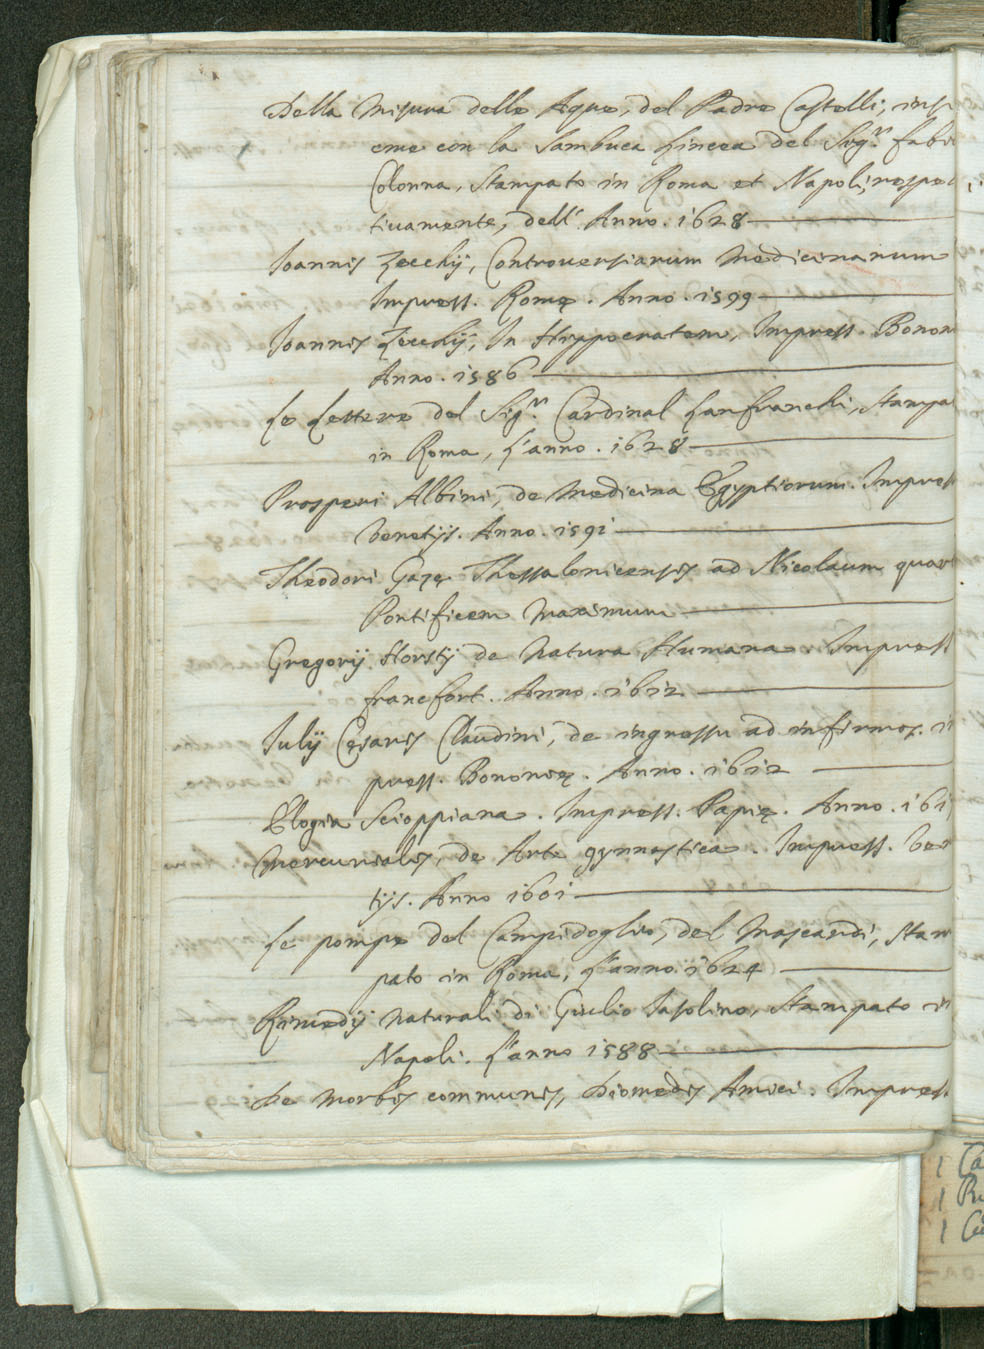 Della Misura delle Aque, del Padre Castelli, insi
eme con la Sambuca Lincea del Sig.r Fabi
Colonna, Stampato in Roma et Napoli, respet
tiuamente, dell' Anno. 1628
Ioannis Zecchij, Controuersiarum Medicinarum
Impress. Romę. Anno. 1599
Ioannis Zecchij, In Hippocratem, Impress. Bonon
Anno. 1586
Le Lettere del Sig.r Cardinal Lanfranchi, Stampa
in Roma, l'anno. 1628
Prosperi Albini, de Medicina Egyptiorum. Impress
Venetijs. Anno. 1591
Theodori Gazę Thessalonicensis ad Nicolaum quart
Pontificem Maximum
Gregorij Horstij de Natura Humana Impress
francfort. Anno. 1612
Iulij Cęsaris Claudini, de ingressu ad infirmos. i
press. Bononię. Anno. 1612
Elogia Scioppiana. Impress. Papię. Anno. 161
Mercurialis, de Arte gymnastica. Impress. Ve
tijs. Anno 1601
Le pompe del Campidoglio, del Mascardi, Stam
pato in Roma, l'anno. 1624
Rimedij naturali di Giulio Iasolino, Stampato in
Napoli. l'anno 1588
De Morbis communis, Diomedis Amici. Impress.
1 Ca
1
1